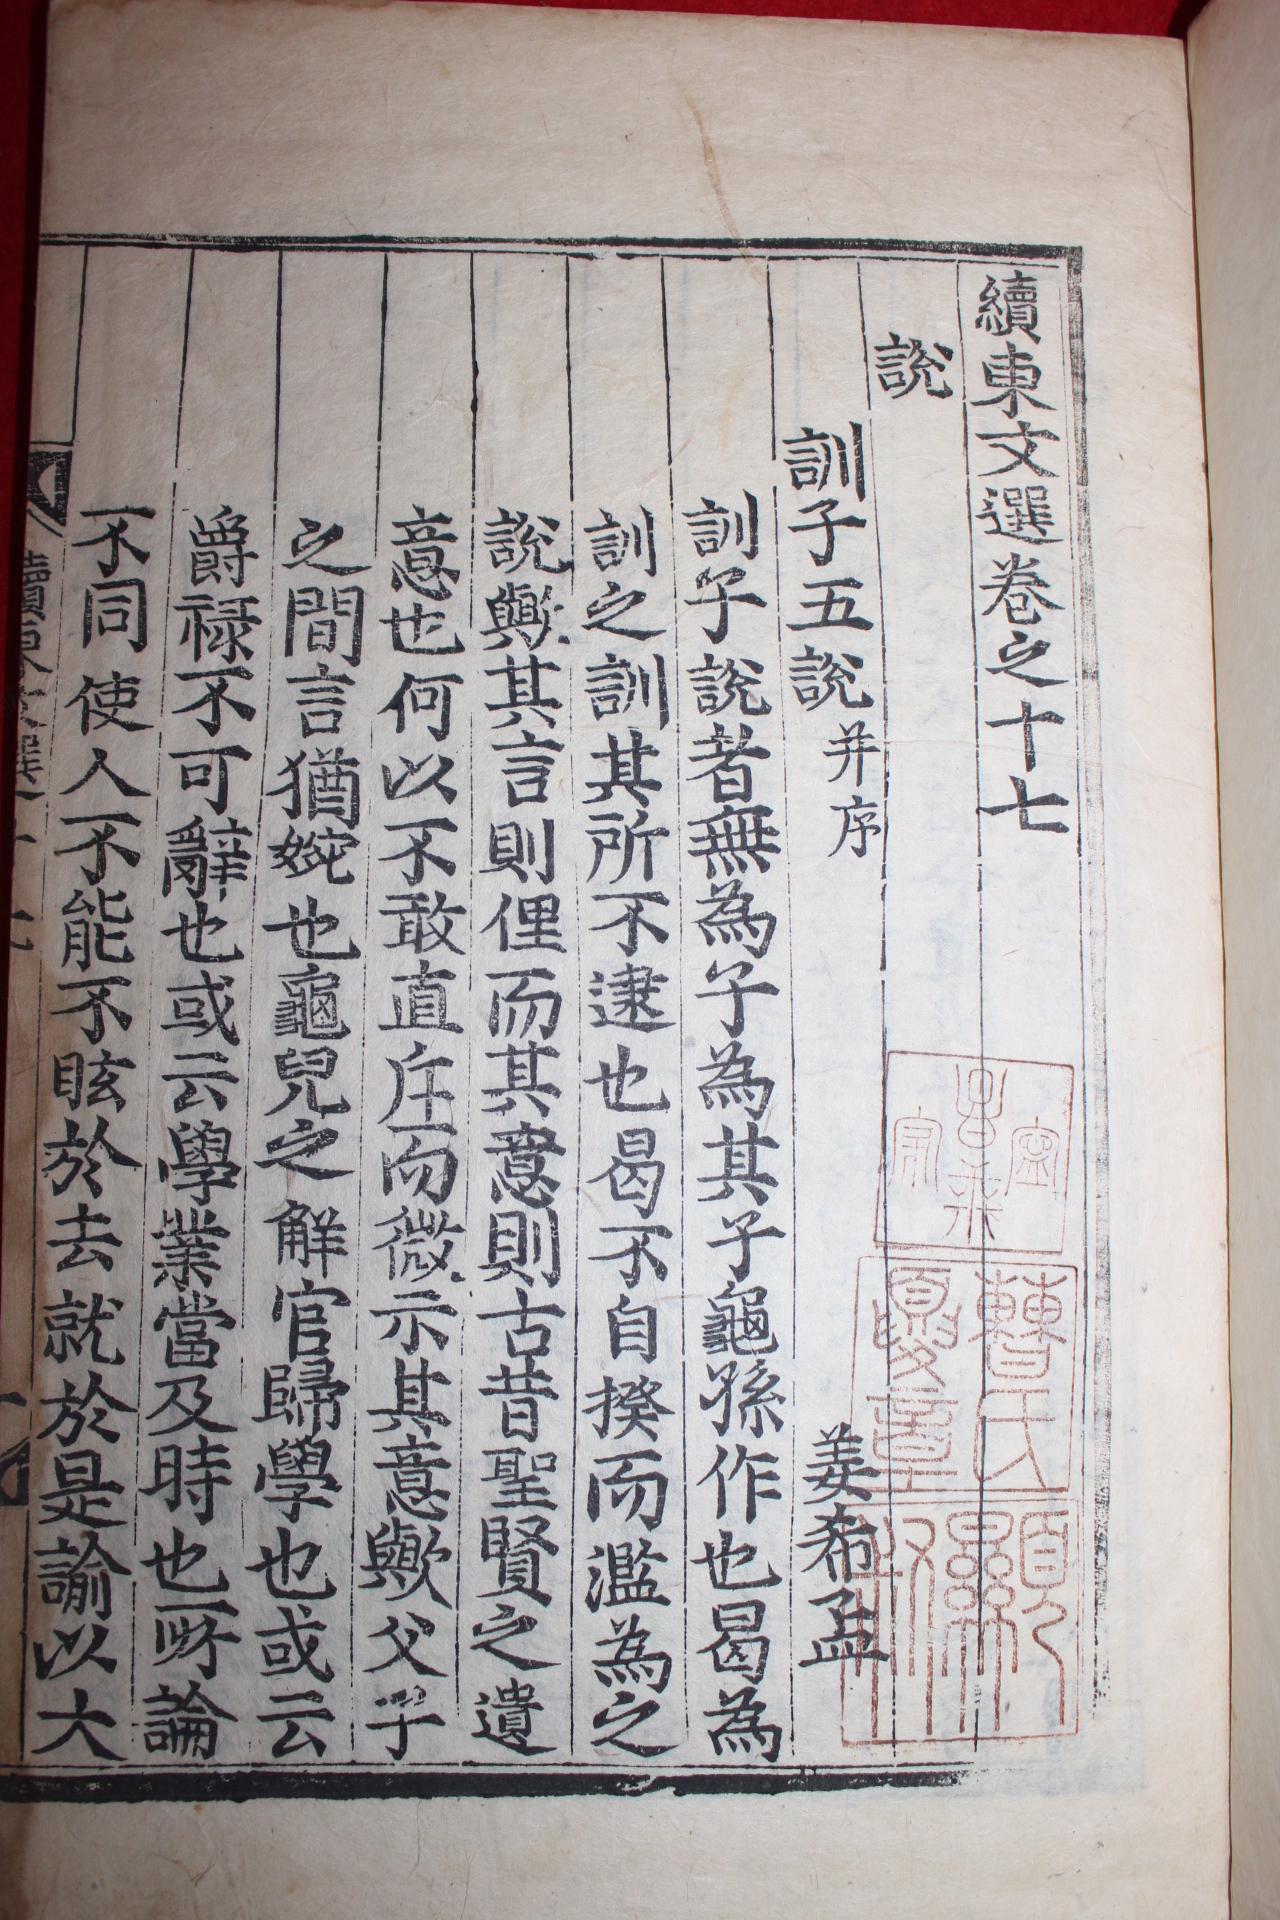 續東文選卷之十七
說
訓子五說 并序 姜希孟
訓子說者無為子為其子龜孫作也曷為
訓之訓其所不逮也曷不自揆而濫為之
說歟其言則俚而其意則古昔聖賢之遺
意也何以不敢直斥而微示其意歟父子
之間言猶婉也龜兒之解官歸學也或云
爵祿不可辭也或云學業當及時也所論
不同使人不能不眩於去就於是諭以大
續東文選十七
曺氏